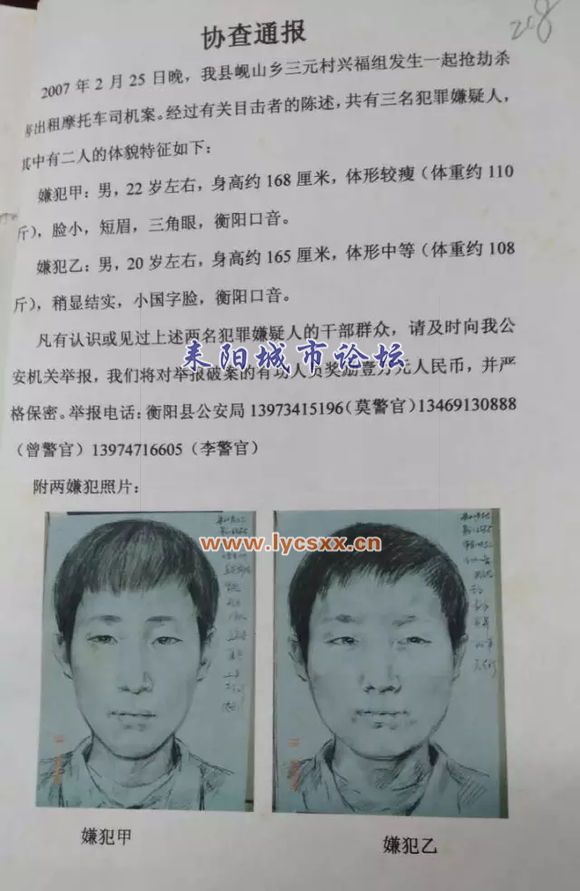 208
协查通报
2007 年 2 月 25 日晚，我县岘山乡三元村兴福组发生一起抢劫杀
害出租摩托车司机案。经过有关目击者的陈述，共有三名犯罪嫌疑人，
其中有二人的体貌特征如下：
嫌犯甲：男，22 岁左右，身高约 168 厘米，体形较瘦（体重约 110
斤），脸小，短眉，三角眼，衡阳口音。
嫌犯乙：男，20 岁左右，身高约 165 厘米，体形中等（体重约 108
斤），稍显结实，小国字脸，衡阳口音。
凡有认识或见过上述两名犯罪嫌疑人的干部群众，请及时向我公
耒阳城市论坛
安机关举报，我们将对举报破案的有功人员奖励壹万元人民币，并严
格保密。举报电话：衡阳县公安局 13973415196（莫警官）13469130888
（曾警官）13974716605（李警官）
附两嫌犯照片：
www.lycsxx.cn
嫌犯甲
嫌犯乙